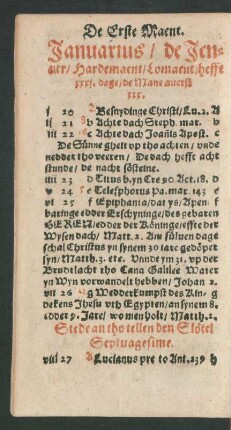 De Erste Maent.
Januarius / de Jen-
ner / Hardemaent / Louwmaent / hefft
xxxj. dage / de Mane auerst
xxx.
f 20 A Besnydinge Christi / Lu. 2. A
ij 21 b Achte dach Steph. mar. b
iij 22 c Achte dach Joañis Apost. c
De Sünne gheit vp tho achten / vnde
nedder tho veeren / De dach hefft acht
stunde / de nacht sösteine.
iij 23 d Titus b. yn Cre 30 Act. 18. d
v 24 e Telesphorus Pa. mar. 143 e
vi 25 f Epiphania / dat ys / Apen f
baringe edder Erschyninge / des gebaren
HEREN / edder der Köninge / effte der
Wysen dach / Matt. 2. Am sülue dage
schal Christus yn synem 30 iare gedöpet
syn / Matth. 3. etc. Vnnd ym 31. vp der
Brudtlacht tho Cana Galilee Water
yn Wyn vorwandelt hebben / Johan 2.
vii 26 g Wedderkumpst des Kin- g
dekens Jhesu vth Egypten / an synem 8.
edder 9. Jare / wo men holt / Matth. 2.
Stede an tho tellen den Slötel
Septuagesime.
viij 27 A Lucianus pre to Ant. 239 h